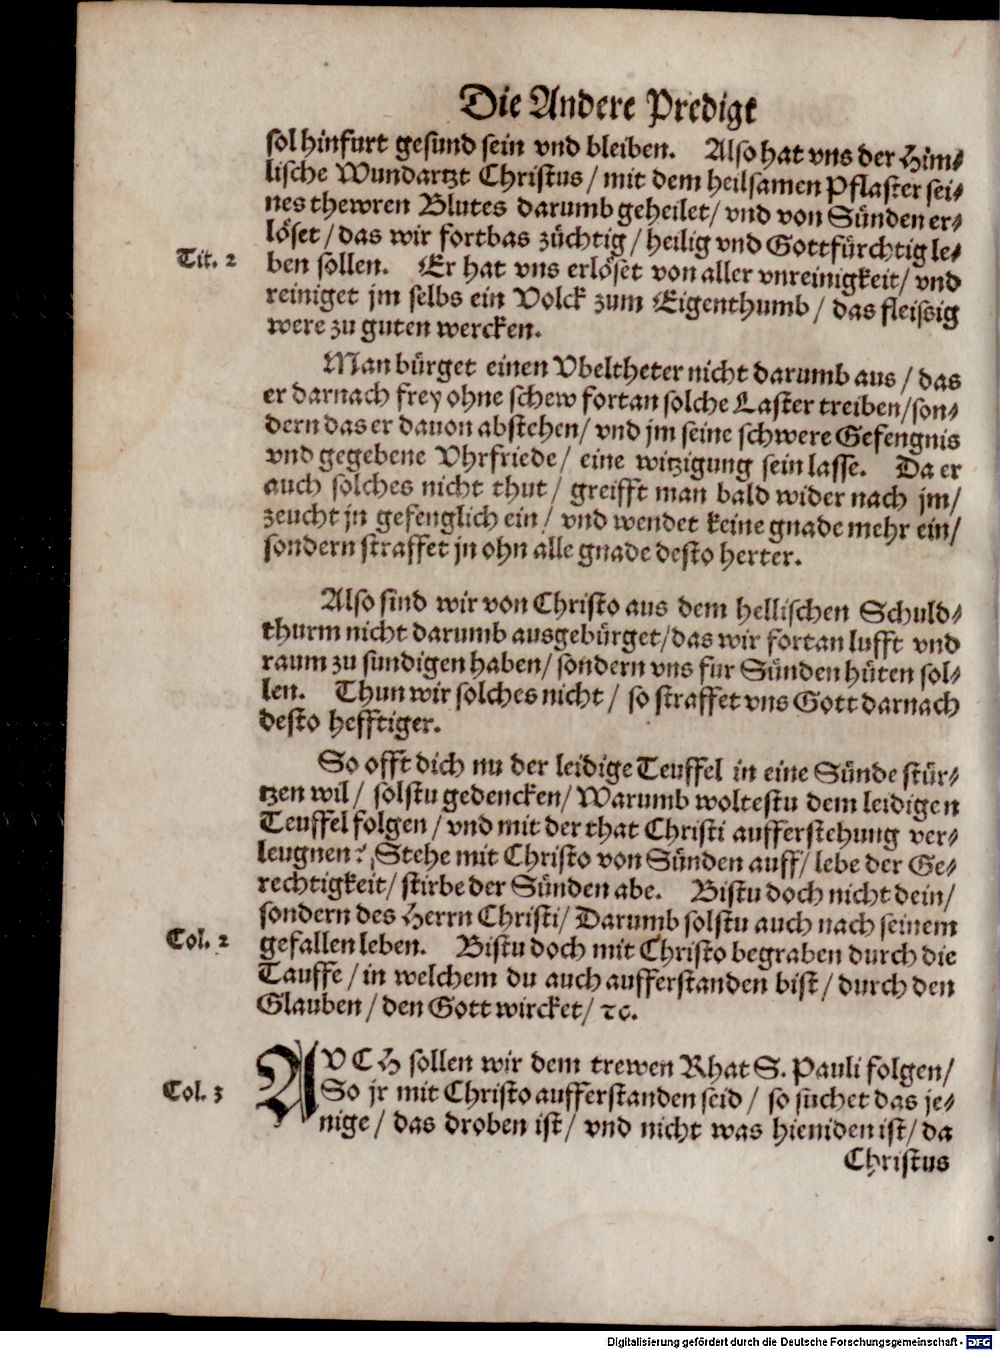 Die Andere Predigt
sol hinfurt gesund sein vnd bleiben. Also hat vns der Him⸗
lische Wundartzt Christus / mit dem heilsamen Pflaster sei⸗
nes thewren Blutes darumb geheilet / vnd von Sünden er⸗
löset / das wir fortbas züchtig / heilig vnd Gottfürchtig le⸗
Tit. 2
ben sollen. Er hat vns erlöset von aller vnreinigkeit / vnd
reiniget jm selbs ein Volck zum Eigenthumb / das fleissig
were zu guten wercken.
Man bürget einen Vbeltheter nicht darumb aus / das
er darnach frey ohne schew fortan solche Laster treiben / son⸗
dern das er dauon abstehen / vnd jm seine schwere Gefengnis
vnd gegebene Vhrfriede / eine witzigung sein lasse. Da er
auch solches nicht thut / greifft man bald wider nach jm /
zeucht jn gefenglich ein / vnd wendet keine gnade mehr ein /
sondern straffet jn ohn alle gnade desto herter.
Also sind wir von Christo aus dem hellischen Schuld⸗
thurm nicht darumb ausgebürget / das wir fortan lufft vnd
raum zu sundigen haben / sondern vns fur Sünden hüten sol⸗
len. Thun wir solches nicht / so straffet vns Gott darnach
desto hefftiger.
So offt dich nu der leidige Teuffel in eine Sünde stür⸗
tzen wil / solstu gedencken / Warumb woltestu dem leidigen
Teuffel folgen / vnd mit der that Christi aufferstehung ver⸗
leugnen? Stehe mit Christo von Sünden auff / lebe der Ge⸗
rechtigkeit / stirbe der Sünden abe. Bistu doch nicht dein /
sondern des Herrn Christi / Darumb solstu auch nach seinem
Col. 2
gefallen leben. Bistu doch mit Christo begraben durch die
Tauffe / in welchem du auch aufferstanden bist / durch den
Glauben / den Gott wircket / ꝛc.
AVCH sollen wir dem trewen Rhat S. Pauli folgen /
Col. 3
So jr mit Christo aufferstanden seid / so suchet das je⸗
nige / das droben ist / vnd nicht was hieniden ist / da
Christus
Digitalisierung gefördert durch die Deutsche Forschungsgemeinschaft - DFG